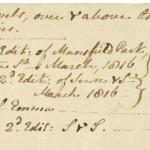 over & above
Edit: of Mansfield Park,
1st March, 1816
2d Edit: of Sense & S:
March 1816
Emma
2d Edit: S & S.